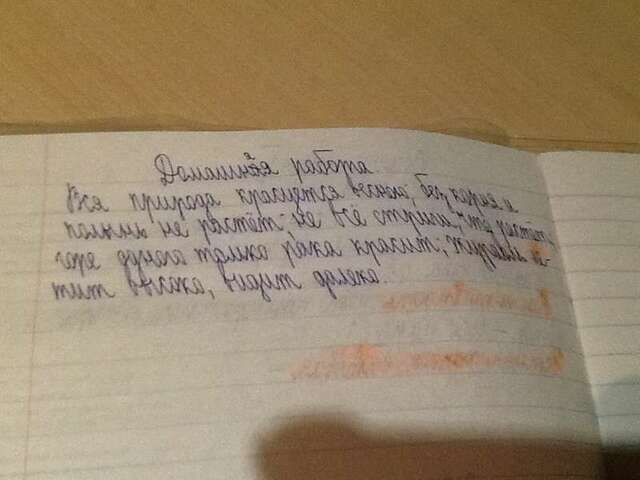 Домашняя работа.
Вся природа красуется весною; Без корня и
полынь не растёт; не всё стриги, что растёт;
горе одного только рака красит; Журавль ле-
тит высоко, видит далеко.